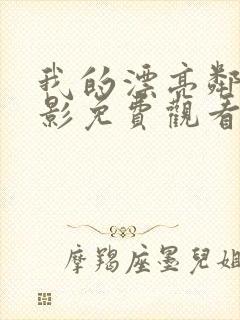 我的漂亮鄰
影免費觀看
摩羯座墨兒姐